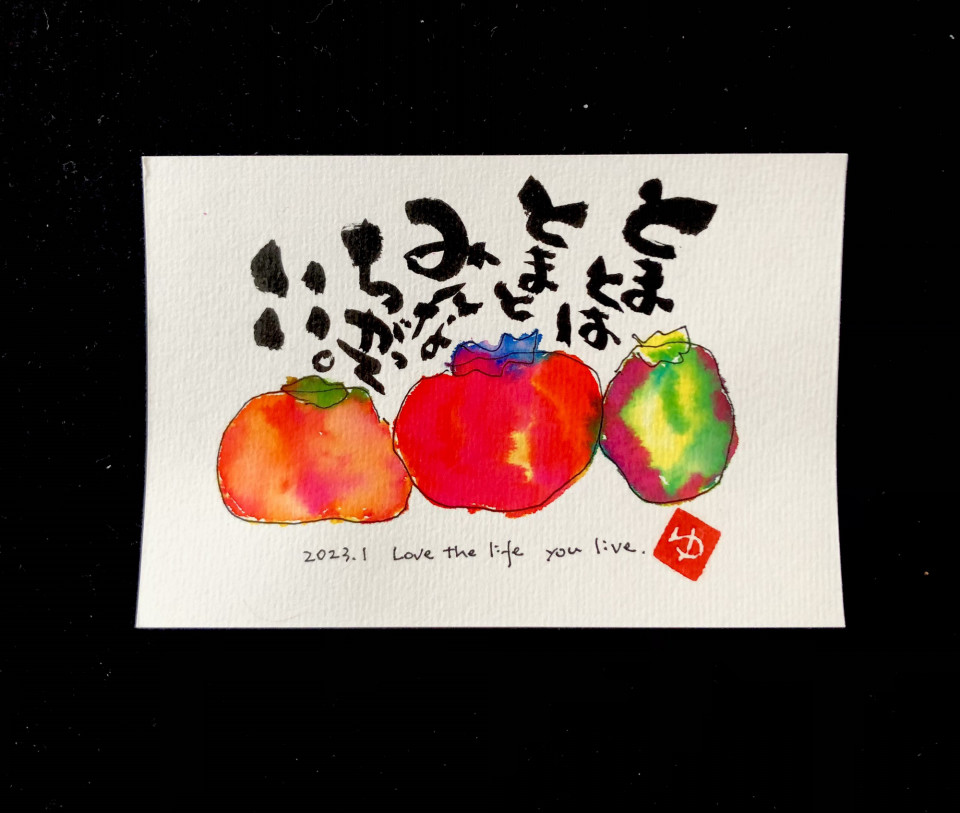 とま
とは
とまと
みんな
ちがって
いい。
2023.1 Love the life you live.
ゆ